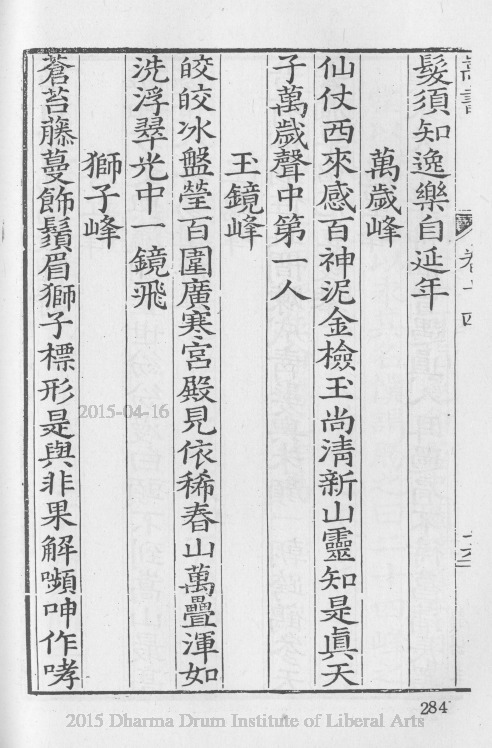 嵩書
卷十四
髮須知逸樂自延年
萬歲峰
仙仗西來感百神泥金檢玉尚清新山靈知是真天
子萬歲聲中第一人
玉鏡峰
皎皎冰盤瑩百圍廣寒宮殿見依稀春山萬疊渾如
洗浮翠光中一鏡飛
獅子峰
蒼苔藤蔓飾鬚眉獅子標形是與非果解嚬呻作哮
284
2015-04-16
2015 Dharma Drum Institute of Liberal Arts